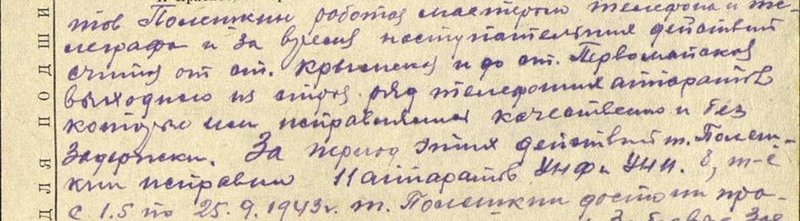 тов Полешкин работая мастером телефона и те-
леграфа и за время наступательных действий
считая от ст. Крымской и до ст. Первомайской
выходило из строя ряд телефонных аппаратов
которые им исправлялись качественно и без
задержки. За период этих действий т. Полеш-
кин исправил 11 аппаратов УНФ и УНИ. т-е
с 1.5 по 25.9.1943г. т. Полешкин достоин пра-
ДЛЯ ПОДШИ